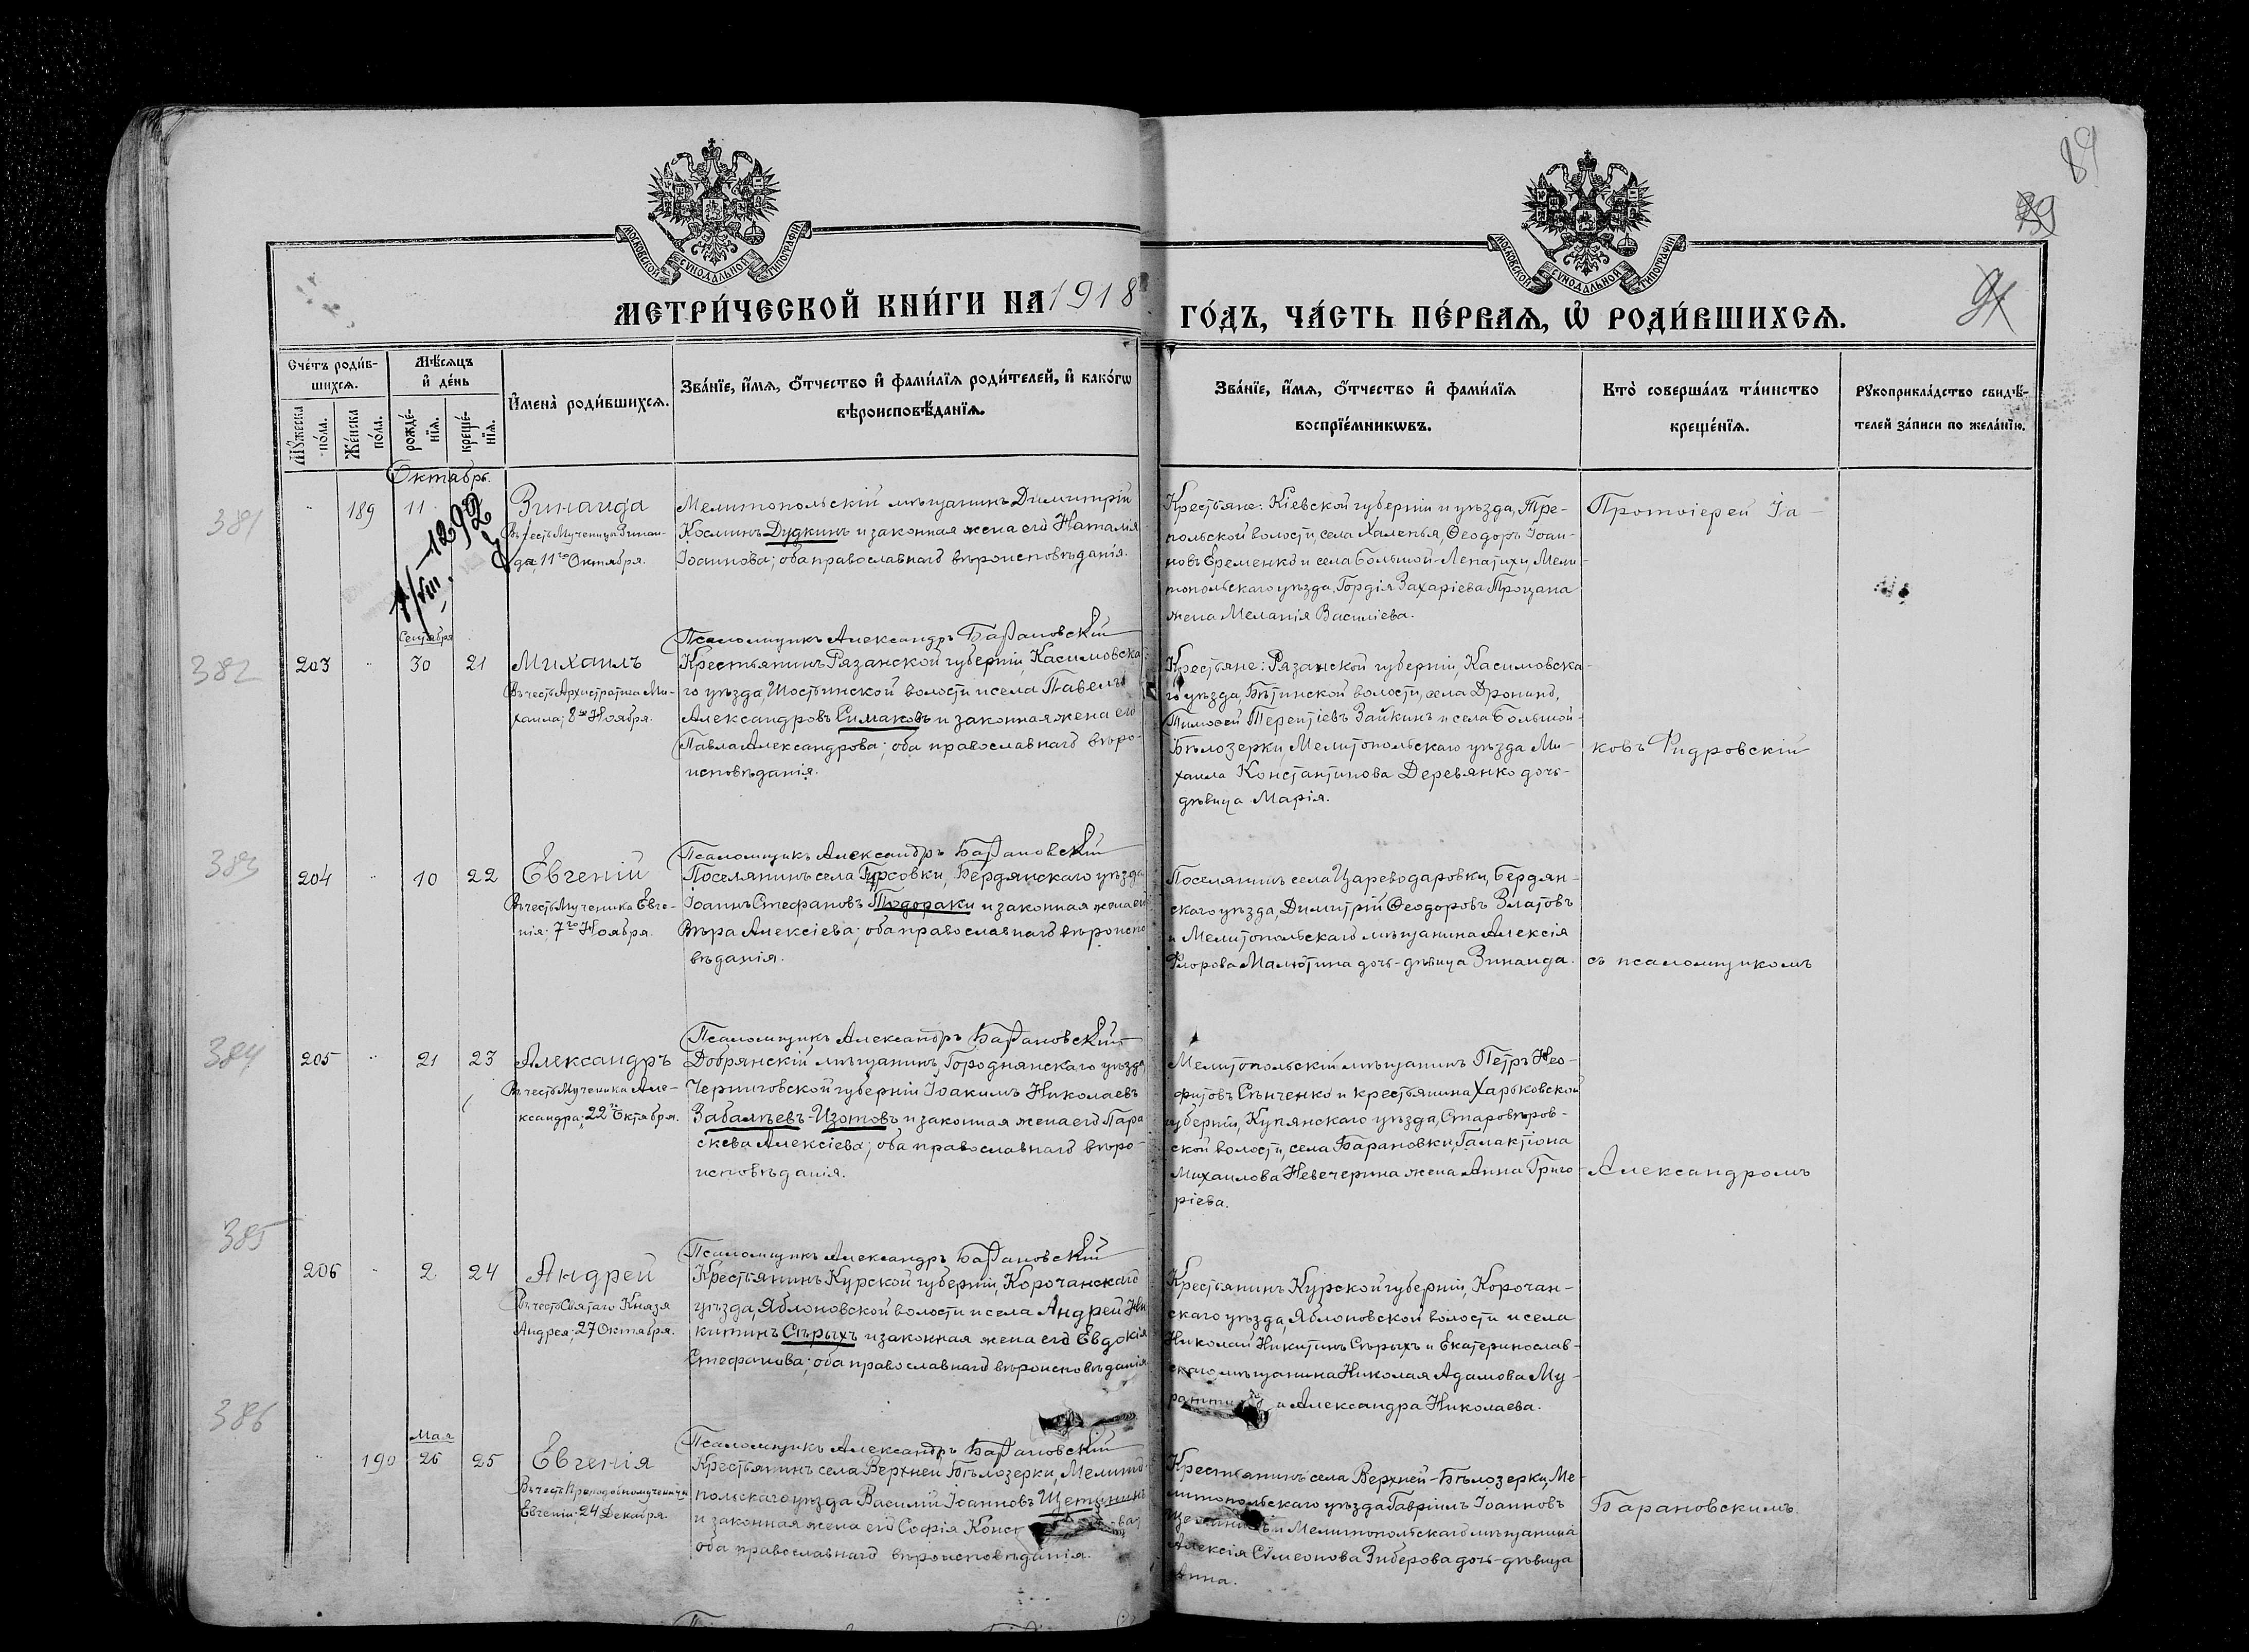 89
39
91
МОСКОВСКОЙ СУНОДАЛЬНОЙ ТИПОГРАФИИ
МОСКОВСКОЙ СУНОДАЛЬНОЙ ТИПОГРАФИИ
МЕТРИ́ЧЕСКОЙ КНИ́ГИ НА 1918
ГО́ДЪ, ЧА́СТЬ ПЕ́РВАѦ, Ѡ҆ РОДИ́ВШИХСѦ.
Сче́тъ роди́в-
шихсѧ.
Мꙋ́жеска по́ла.
Же́нска по́ла.
Мѣ́сѧцъ
и҆ де́нь
рожде́-
нїѧ.
креще́-
нїѧ.
И҆мена̀ роди́вшихсѧ.
Зва́нїе, и҆́мѧ, ѻ҆́тчество и҆ фами́лїѧ роди́телей, и҆ како́гѡ
вѣроисповѣ́данїѧ.
Зва́нїе, и҆́мѧ, ѻ҆́тчество и҆ фами́лїѧ
воспрїе́мникѡвъ.
Кто̀ соверша́лъ та́инство
креще́нїѧ.
Рꙋкоприкла́дство свидѣ́-
телей за́писи по жела́нїю.
Октябрь.
381
189
11
1292
Зинаида
Въ честь Мученицы Зинаи-
ды, 11го Октября.
Мелитопольскій мѣщанинъ Димитрій
Косминъ Дудкинъ и законная жена его Наталія
Іоаннова; оба православнаго вѣроисповѣданія.
Крестьяне: Кіевской губерніи и уѣзда, Тре-
польской волости, села Халепья, Ѳеодоръ Іоан-
новъ Еременко и села Большой-Лепатихи, Мели-
топольскаго уѣзда, Гордія Захаріева Троцана
жена Меланія Василіева.
Протоіерей Іа-
Псаломщикъ Александръ Барановскій
382
203
Сентября
30
21
Михаилъ
Въ честь Архистратига Ми-
хаила; 8го Ноября.
Крестьянинъ Рязанской губерніи, Касимовска
го уѣзда, Шостьинской волости и села Павелъ
Александровъ Симаковъ и законная жена его
Павла Александрова; оба православнаго вѣро-
исповѣданія.
Крестьяне: Рязанской губерніи, Касимовска-
го уѣзда, Бѣтинской волости, села Дронино,
Тимоѳей Терентіевъ Зайкинъ и села Большой-
Бѣлозерки, Мелитопольскаго уѣзда Ми-
хаила Константинова Деревянко дочь-
дѣвица Марія.
ковъ Фидровскій
Псаломщикъ Александръ Барановскій
383
204
10
22
Евгеній
Въ честь Мученика Евге-
нія; 7го Ноября.
Поселянинъ села Гюрсовки, Бердянскаго уѣзда
Іоаннъ Стефановъ Тодораки и законная жена его
Вѣра Алексіева; оба православнаго вѣроиспо
вѣданія.
Поселянинъ села Цареводаровки, Бердян-
скаго уѣзда, Димитрій Ѳеодоровъ Златовъ
и Мелитопольскаго мѣщанина Алексія
Флорова Малютина дочь-дѣвица Зинаида.
съ псаломщикомъ
Псаломщикъ Александръ Барановскій
384
205
21
23
Александръ
Въ честь Мученика Але-
ксандра; 22го Октября.
Добрянскій мѣщанинъ, Городнянскаго уѣзда
Черниговской губерніи Іоакимъ Николаевъ
Забалуевъ-Изотовъ и законная жена его Пара
скева Алексіева; оба православнаго вѣро-
исповѣданія.
Мелитопольскій мѣщанинъ Петръ Нео-
фитовъ Сѣнченко и крестьянина Харьковской
губерніи, Купянскаго уѣзда, Старовѣров-
ской волости, села Барановки, Галактіона
Михаилова Невечерина жена Анна Григо-
ріева.
Александромъ
Псаломщикъ Александръ Барановскій
385
206
2
24
Андрей
Въ честь Святаго Князя
Андрея; 27 Октября.
Крестьянинъ Курской губерніи, Корочанскаго
уѣзда, Яблоновской волости и села Андрей Ни
китинъ Сѣрыхъ и законная жена его Евдокія
Стефанова; оба православнаго вѣроисповѣданія
Крестьянинъ Курской губерніи, Корочан-
скаго уѣзда, Яблоновской волости и села
Николай Никитинъ Сѣрыхъ и Екатеринослав-
скаго мѣщанина Николая Адамова Му-
а Александра Николаева.
Псаломщикъ Александръ Барановскій
386
190
Мая
26
25
Евгенія
Въ честь Преподобномученицы
Евгеніи; 24 Декабря.
Крестьянинъ села Верхней Бѣлозерки, Мелито
польскаго уѣзда Василій Іоанновъ Щетининъ
и законная жена его Софія Конст
оба православнаго вѣроисповѣданія.
Крестьянинъ села Верхней-Бѣлозерки, Ме-
литопольскаго уѣзда Гавріилъ Іоанновъ
Щетининъ и Мелитопольскаго мѣщанина
Алексія Симеонова Зиберова дочь-дѣвица
Анна.
Барановскимъ